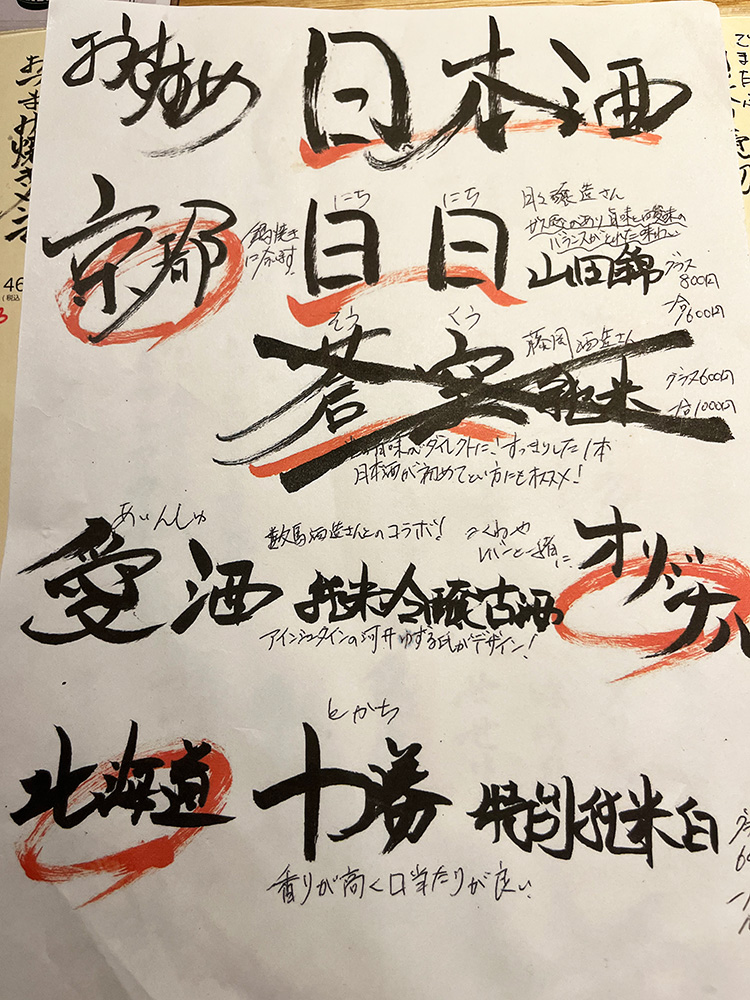 おすすめ 日本酒
京都
鍋焼き
に合います!
にち にち
日日
日々醸造さん
ガス感のあり旨味と酸味の
バランスがとれた味わい
山田錦
グラス
800円
一合
1600円
そう くう
蒼空
藤岡酒造さん
純米
グラス600円
一合1000円
旨味がダイレクトに!すっきりした1本
日本酒が初めてという方にもオススメ!
あいんしゅ
愛酒
数馬酒造さんとのコラボ!
つくねや
レバーと一緒に
純米吟醸古酒
アインシュタインの河井ゆずる氏がデザイン!
オリジナル
とかち
北海道 十勝 特別純米白
香りが高く口当たりが良い
おつまみ焼きメシ
46
(税込